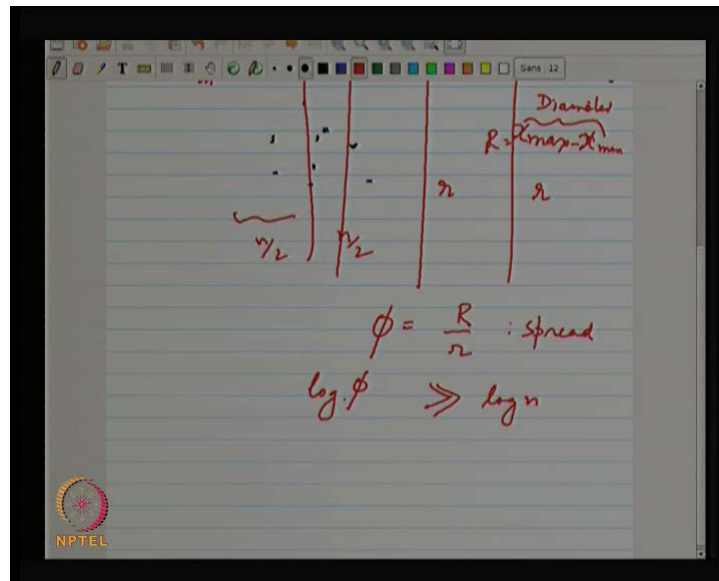 T
Sans 12
Diameter
R = xmax - xmin
r r
n/2 n/2
φ = R/r : spread
log φ >> log n
NPTEL